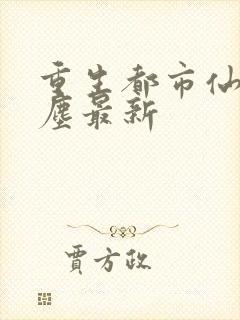 重生都市仙
塵最新
賈方政